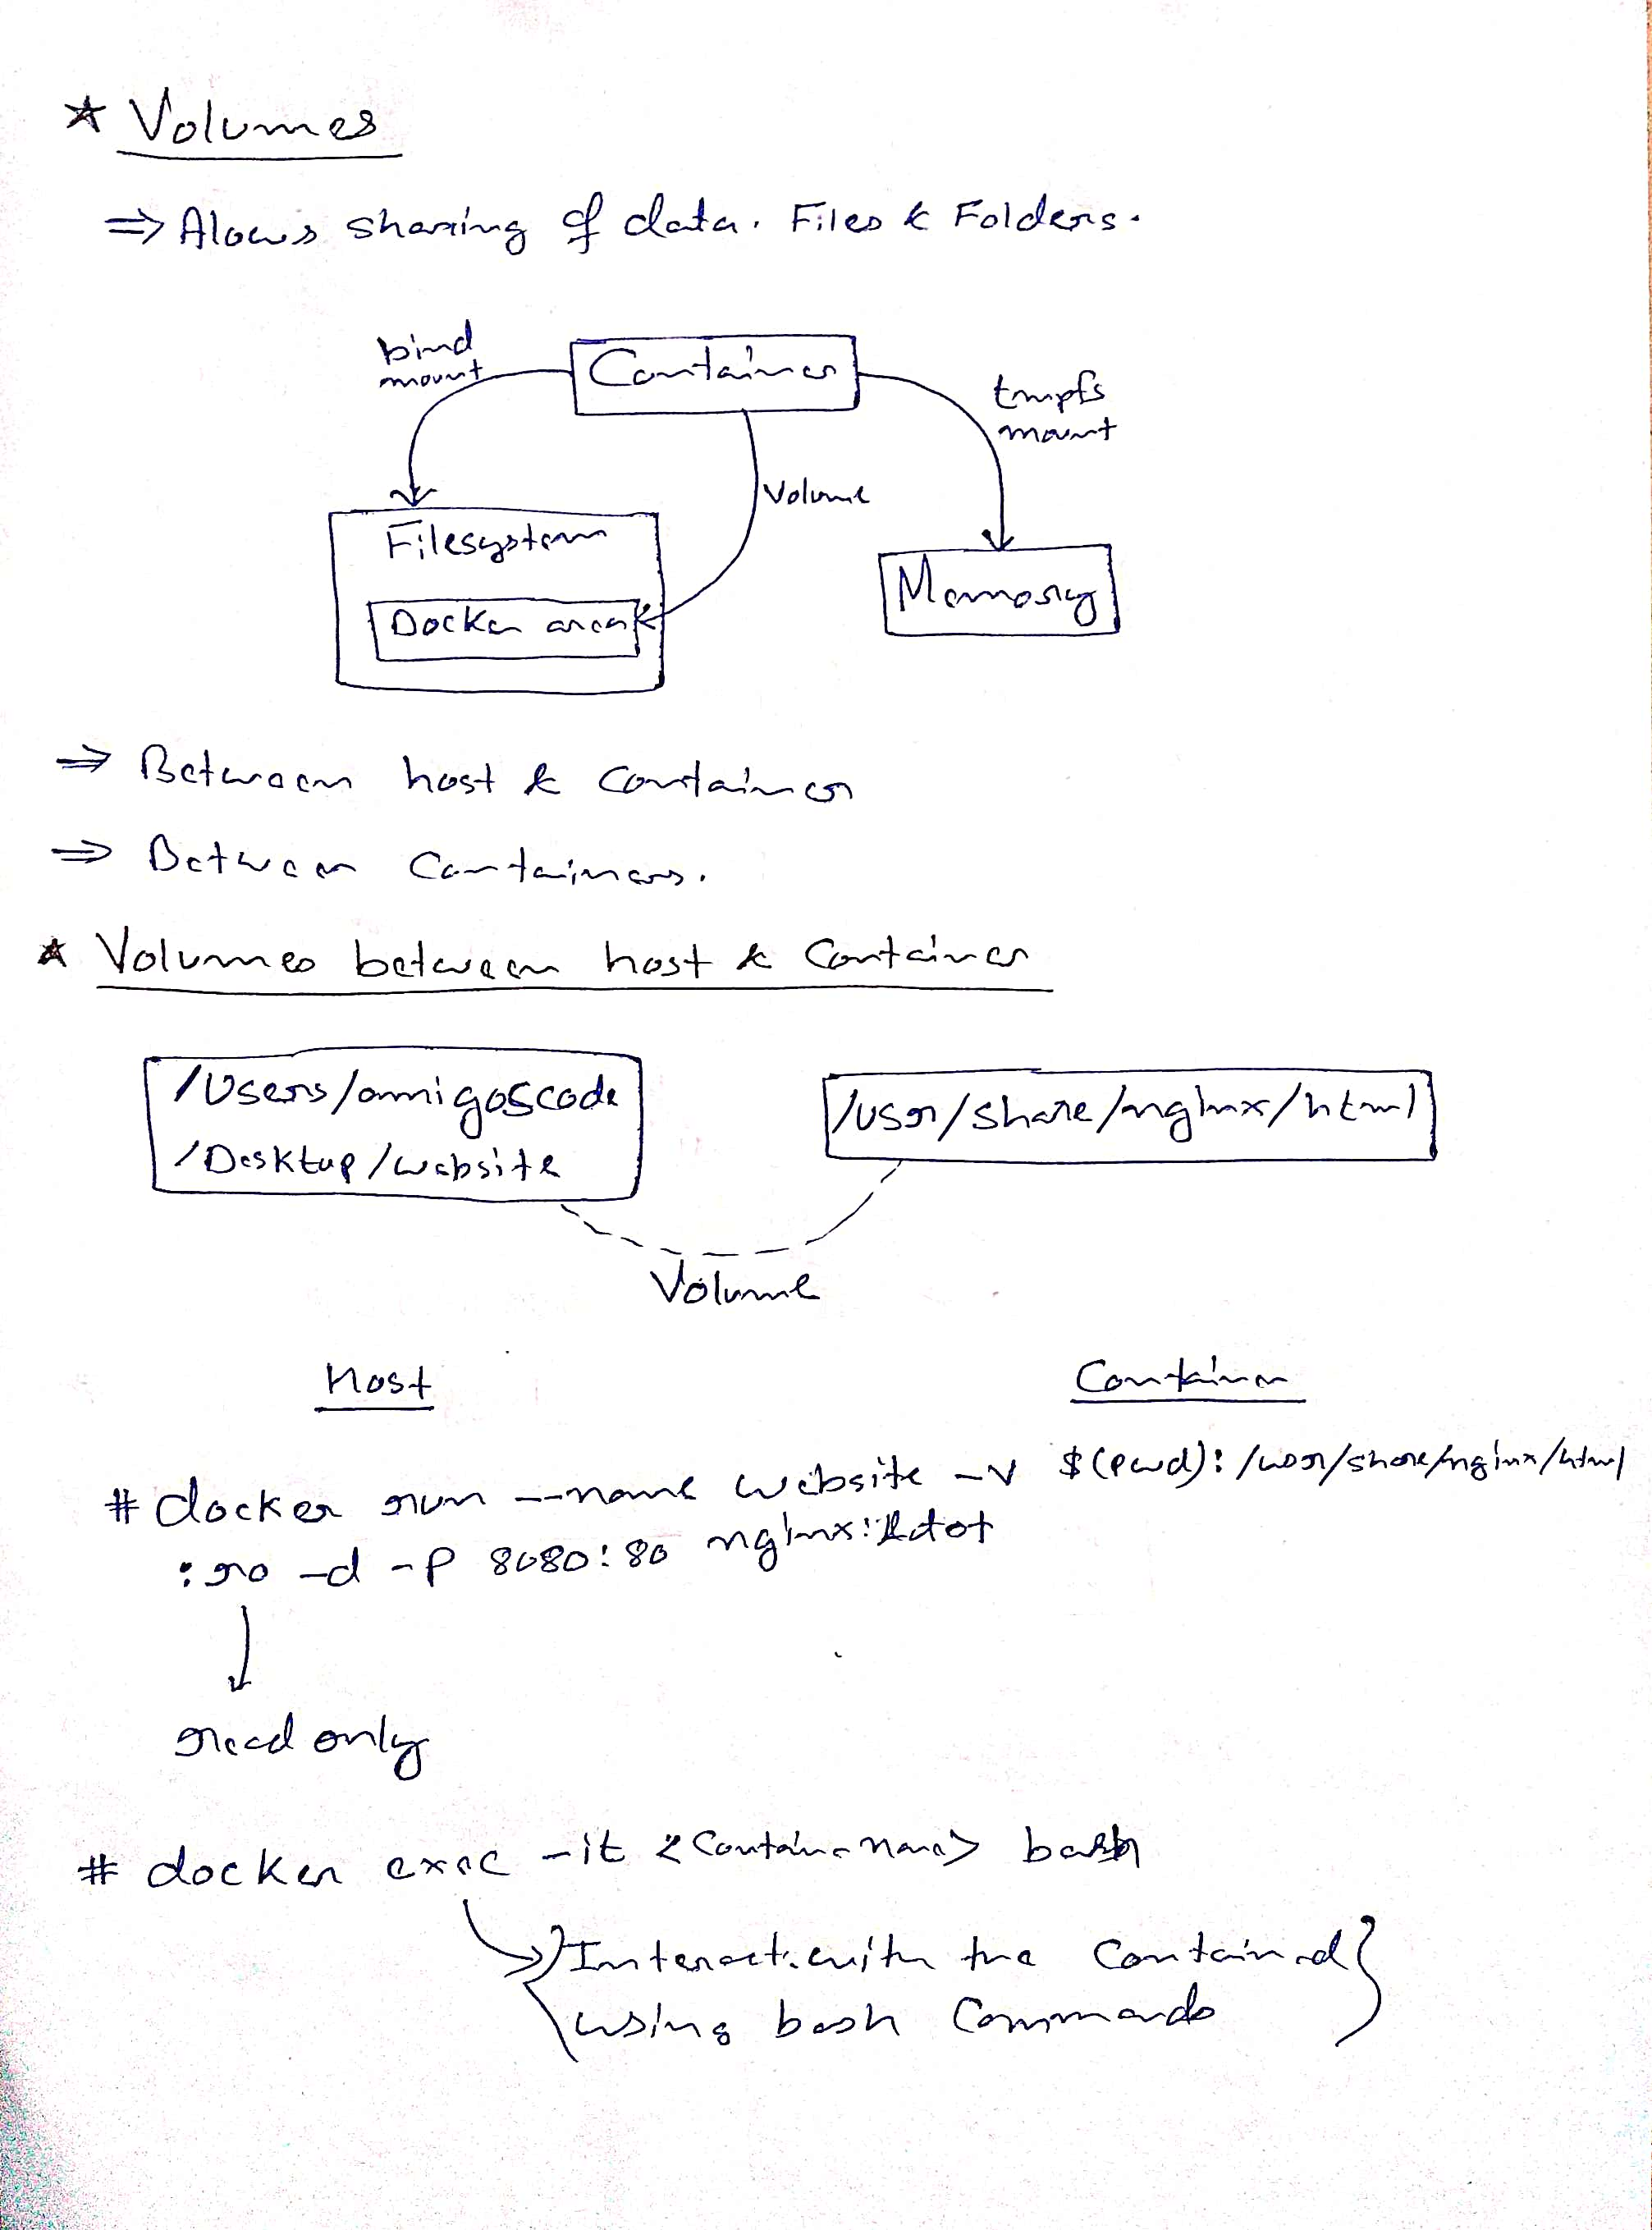 ☆ Volumes
⇒ Alows sharing of data. Files & Folders.
bind
mount
Container
tmpfs
mount
Volume
Filesystem
Docker area
Memory
⇒ Between host & Container
⇒ Between Containers.
☆ Volumes between host & Container
/Users/amigoscode
/Desktop/website
/usr/share/nginx/html
Volume
Host
Container
# docker run --name website -v $(pwd):/usr/share/nginx/html
:ro -d -p 8080:80 nginx:
read only
# docker exec -it <Container name> bash
Interact with the
using bash Commands